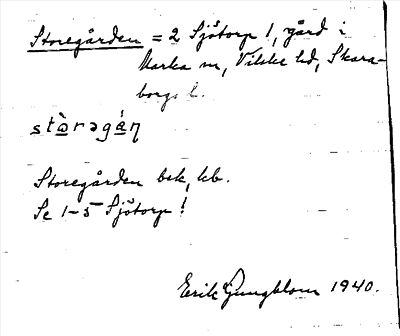 Storegården = 2 Sjötorp 1, gård i
Marka sn, Vilske hd, Skara-
borgs l.
stòrəgán
Storegården bek, kb.
Se 1-5 Sjötorp!
Erik Ljungblom 1940.